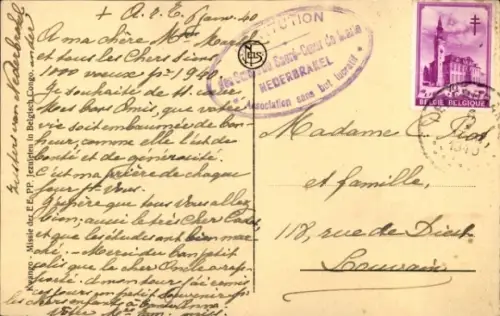 + A. J. E. 6 janv. 40
A ma chère Mme
et tous les Chers siens
1000 voeux pr 1940.
Je souhaite de tt coeur
Mes bons Amis, que votre
vie soit embaumée de bon-
heur, comme elle l'est de
bonté et de générosité.
C'est ma prière de chaque
jour pr Vous.
J'espère que tous Vous allez
bien; aussi le très Cher
et que les études ont bien mar-
ché. - Merci du bon petit
colis que le cher Oncle a rap-
porté. A mon tour, j'ai remis
ces jours un petit souvenir pr
les chers enfants à
Votre
Zusters van Nederbrakel
Kwango - Missie der E.E. P.P. Jezuieten in Belgisch Congo.
INSTITUTION
des Soeurs du Sacré-Coeur de Marie
NEDERBRAKEL
Association sans but lucratif
BELGIE BELGIQUE
Madame C. Piot,
et famille,
118, rue de Diest
Louvain